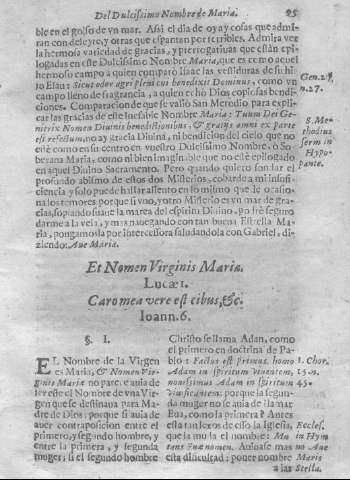 Del Dulcissimo Nombre de Maria. 95
ble en el golfo de vn mar. Assi el dia de oy ay cosas que admi-
ran con deleyte, y otras que espantan por terribles. Admira ver
la hermosa variedad de gracias, y prerrogatiuas que están epi-
logadas en este Dulcissimo Nombre Maria, que es como aquel
hermoso campo a quien comparò Isaac las vestiduras de su hi-
jo Elau: Sicut odor agri pleni cui benedixit Dominus, como vn
campo lleno de fragrancia, a quien echò Dios copiosas bendi-
ciones. Comparacion de que se valiò San Metodio para expli-
car las gracias de este Inefable Nombre Maria: Tuum Dei Ge-
nitrix Nomen Diuini benedictionibus, & gratijs omni ex parte
est refectum, no ay gracia Diuina, ni bendicion del cielo que no
esté como en su centro en vuestro Dulcissimo Nombre, ò So-
berana Maria, como ni bien imaginable que no esté epilogado
en aquel Diuino Sacramento. Pero quando quiero sondar el
profundo abismo de estos dos Misterios, cobarde a mi insufi-
ciencia y solo puede hallar assento en lo mismo que le ocasio-
na los temores porque si vno, y otro Misterio es vn mar de gra-
cias, soplando suaue la marea del espiritu Diuino, podrè seguro
darme a la vela, y mas nauegando con tan buena Estrella Ma-
ria, pongamosla por intercessora saludandola con Gabriel, di-
ziendo: Aue Maria.
Gen. 28.
n. 27.
S. Me-
thodius
serm in
Hypo-
pante.
Et Nomen Virginis Maria.
Lucæ 1.
Caro mea vere est cibus, &c.
Ioann. 6.
§. I.
EL Nombre de la Virgen
es Maria, & Nomen Vir-
ginis Maria no parece auia de
ser este el Nombre de vna Vir-
gen que se destinaua para Ma-
dre de Dios, porque si auia de
auer contraposicion entre el
primero, y segundo hombre, y
entre la primera, y segunda
muger; si el segundo hombre
Christo se llama Adan, como
el primero en doctrina de Pa-
blo: Factus est primus homo
Adam in spiritum viuentem,
nouissimus Adam in spiritum
viuificantem: porque la segun-
da muger no se auia de llamar
Eua, como la primera? Antes
esta tan lexos de esso la Iglesia,
que la muda el nombre: Mu
tans Euæ nomen. Aun nace mas
esta dificultad; poner nombre
a las
1. Chor.
15. n.
45.
Eccles.
in Hym
no Aue
Maris
Stella.